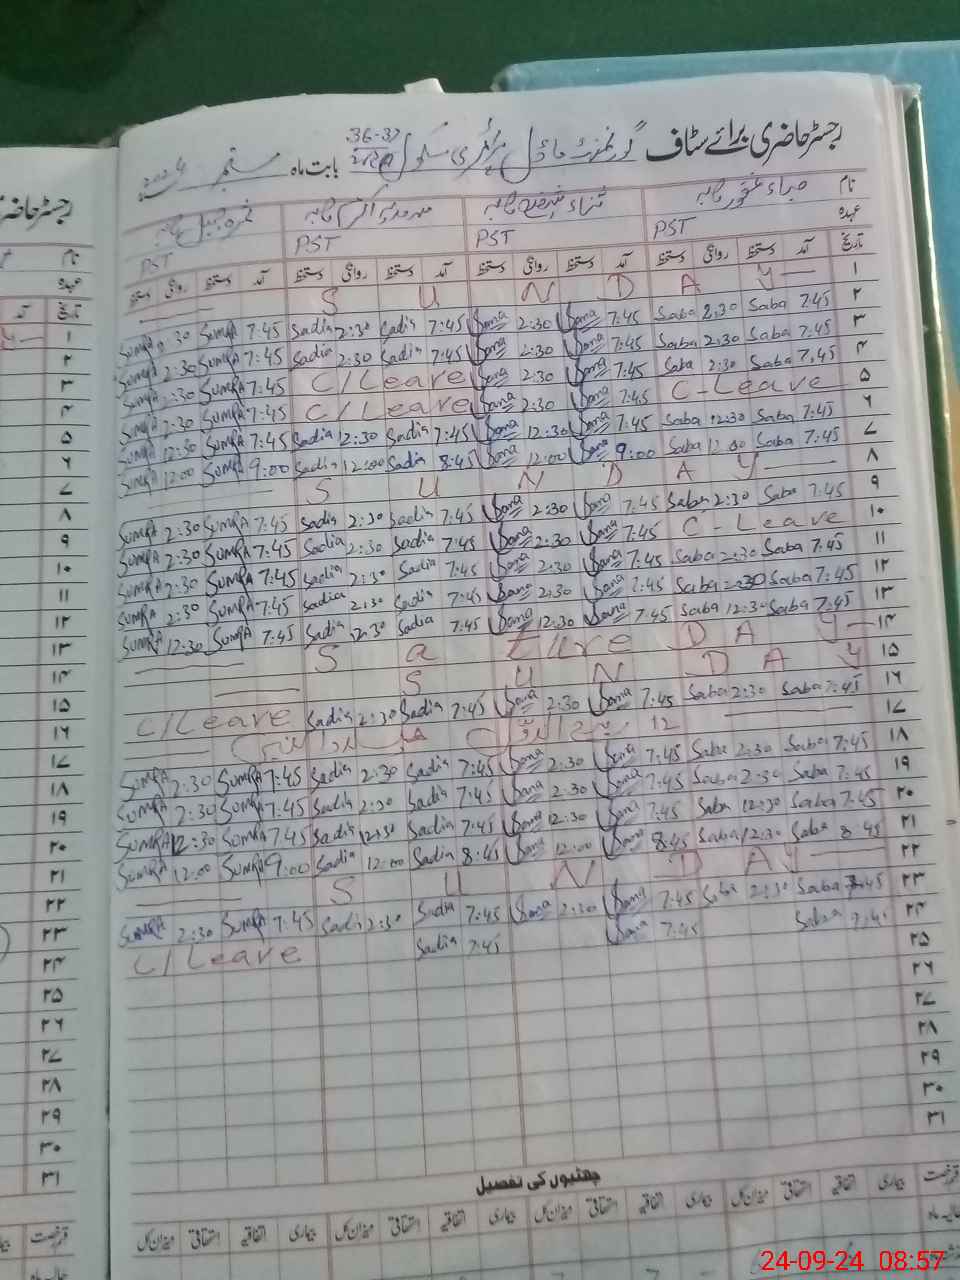 رجسٹر حاضری برائے سٹاف گورنمنٹ ماڈل پرائمری سکول 36-37 بابت ماہ ستمبر 2024
نام صباء غفور صاحبہ
عہدہ PST PST PST PST
تاریخ آمد دستخط روانگی دستخط آمد دستخط روانگی دستخط آمد دستخط روانگی دستخط آمد دستخط روانگی دستخط
۱ S U N D A Y
۲ Sumra 2:30 Sumra 7:45 Sadia 2:30 Sadia 7:45 Sana 2:30 Sana 7:45 Saba 2:30 Saba 7:45
۳ Sumra 2:30 Sumra 7:45 Sadia 2:30 Sadia 7:45 Sana 2:30 Sana 7:45 Saba 2:30 Saba 7:45
۴ Sumra 2:30 Sumra 7:45 C/Leave Sana 2:30 Sana 7:45 Saba 2:30 Saba 7:45
۵ Sumra 2:30 Sumra 7:45 C/Leave Sana 2:30 Sana 7:45 C-Leave
۶ Sumra 12:30 Sumra 7:45 Sadia 12:30 Sadia 7:45 Sana 12:30 Sana 7:45 Saba 12:30 Saba 7:45
۷ Sumra 12:00 Sumra 9:00 Sadia 12:00 Sadia 8:45 Sana 12:00 Sana 9:00 Saba 12:00 Saba 7:45
۸ S U N D A Y
۹ Sumra 2:30 Sumra 7:45 Sadia 2:30 Sadia 7:45 Sana 2:30 Sana 7:45 Saba 2:30 Saba 7:45
۱۰ Sumra 2:30 Sumra 7:45 Sadia 2:30 Sadia 7:45 Sana 2:30 Sana 7:45 C-Leave
۱۱ Sumra 2:30 Sumra 7:45 Sadia 2:30 Sadia 7:45 Sana 2:30 Sana 7:45 Saba 2:30 Saba 7:45
۱۲ Sumra 2:30 Sumra 7:45 Sadia 2:30 Sadia 7:45 Sana 2:30 Sana 7:45 Saba 2:30 Saba 7:45
۱۳ Sumra 12:30 Sumra 7:45 Sadia 12:30 Sadia 7:45 Sana 12:30 Sana 7:45 Saba 12:30 Saba 7:45
۱۴ S a t u r D A Y
۱۵ S U N D A Y
۱۶ C/Leave Sadia 2:30 Sadia 7:45 Sana 2:30 Sana 7:45 Saba 2:30 Saba 7:45
۱۷ 12 ربیع الاول
۱۸ Sumra 2:30 Sumra 7:45 Sadia 2:30 Sadia 7:45 Sana 2:30 Sana 7:45 Saba 2:30 Saba 7:45
۱۹ Sumra 2:30 Sumra 7:45 Sadia 2:30 Sadia 7:45 Sana 2:30 Sana 7:45 Saba 2:30 Saba 7:45
۲۰ Sumra 12:30 Sumra 7:45 Sadia 12:30 Sadia 7:45 Sana 12:30 Sana 7:45 Saba 12:30 Saba 7:45
۲۱ Sumra 12:00 Sumra 9:00 Sadia 12:00 Sadia 8:45 Sana 12:00 Sana 8:45 Saba 12:30 Saba 8:45
۲۲ S U N D A Y
۲۳ Sumra 2:30 Sumra 7:45 Sadia 2:30 Sadia 7:45 Sana 2:30 Sana 7:45 Saba 2:30 Saba 7:45
۲۴ C/Leave Sadia 7:45 Sana 7:45 Saba 7:45
۲۵
۲۶
۲۷
۲۸
۲۹
۳۰
۳۱
چھٹیوں کی تفصیل
بیماری اتفاقیہ استحقاقی میزان کل بیماری اتفاقیہ استحقاقی میزان کل بیماری اتفاقیہ استحقاقی میزان کل بیماری اتفاقیہ استحقاقی میزان کل
رجسٹر حاضری
نام
عہدہ
تاریخ
آمد
۱
۲
۳
۴
۵
۶
۷
۸
۹
۱۰
۱۱
۱۲
۱۳
۱۴
۱۵
۱۶
۱۷
۱۸
۱۹
۲۰
۲۱
۲۲
۲۳
۲۴
۲۵
۲۶
۲۷
۲۸
۲۹
۳۰
۳۱
24-09-24 08:57